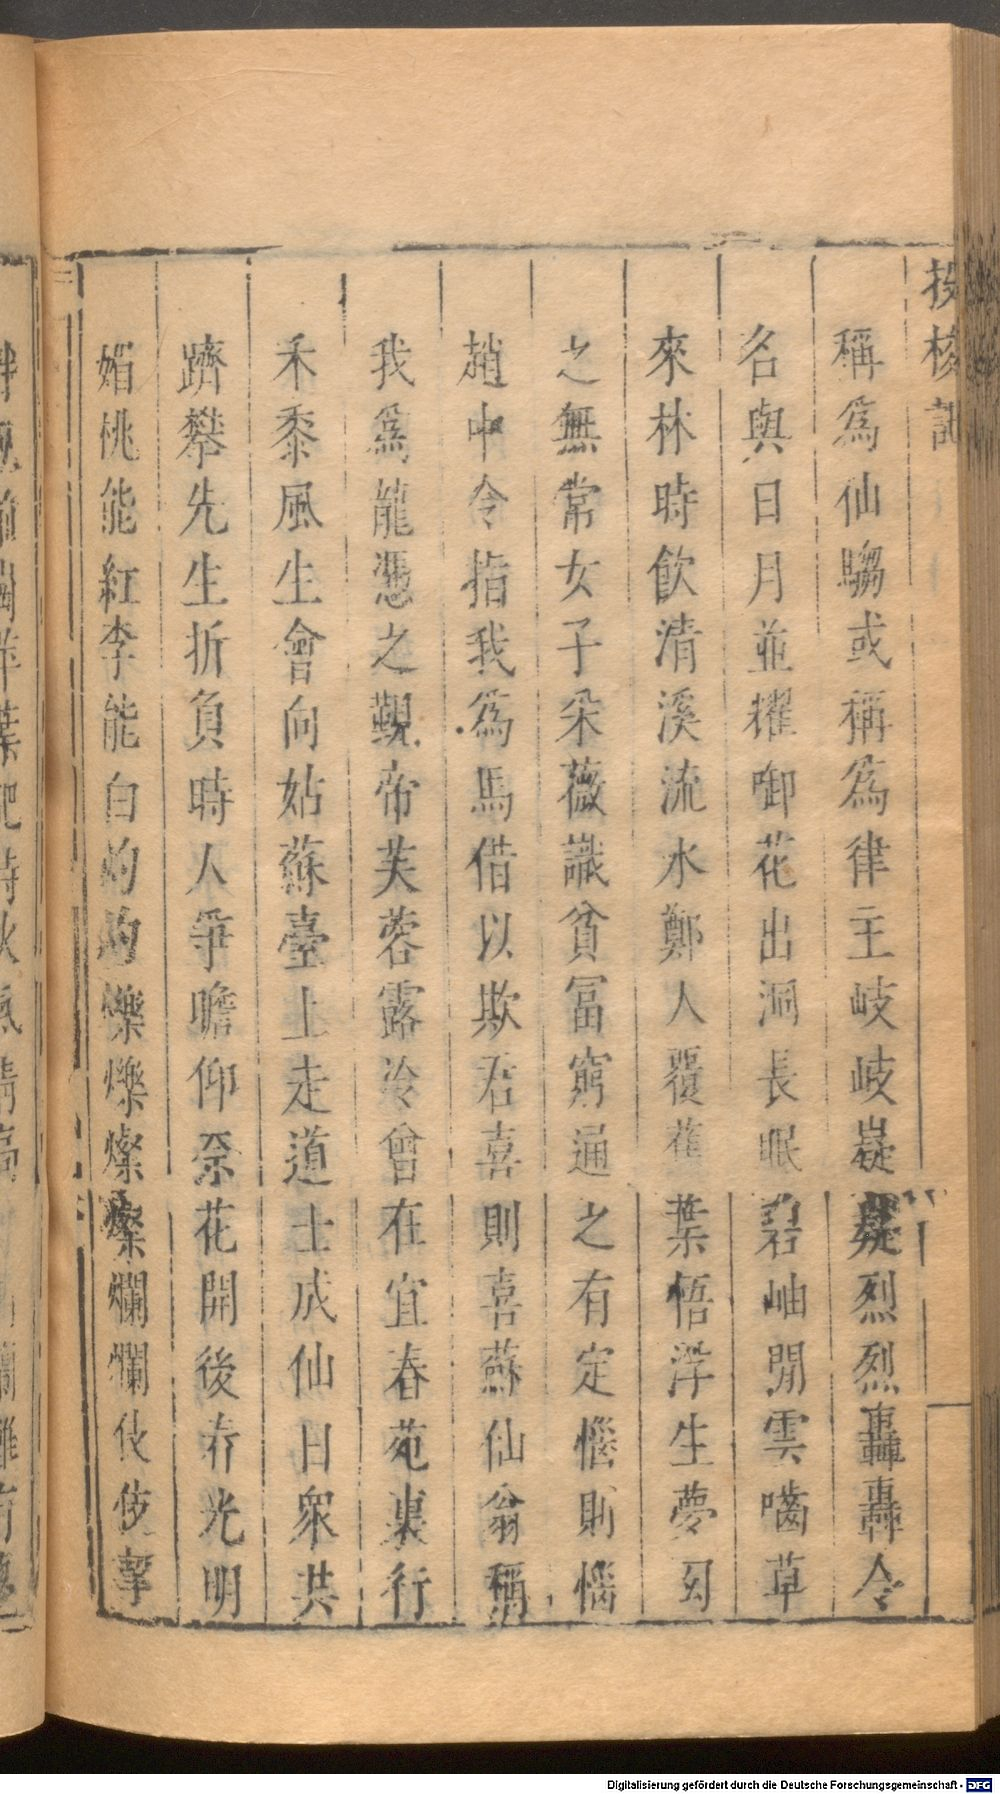 投梭記
稱爲仙騶或稱爲律主岐岐嶷嶷烈烈轟轟令
名與日月並耀啣花出洞長眠碧岫閒雲嚙草
來林時飲清溪流水鄭人覆蕉葉悟浮生夢幻
之無常女子采薇識貧冨窮通之有定惱則惱
趙中令指我爲馬借以欺君喜則喜蘇仙翁稱
我爲龍憑之覲帝芙蓉露冷曾在宜春苑裏行
禾黍風生會向姑蘇臺上走道士成仙日衆共
躋攀先生折負時人爭瞻仰奈花開後春光明
媚桃能紅李能白灼灼爍爍燦燦爛爛伎伎挈
Digitalisierung gefördert durch die Deutsche Forschungsgemeinschaft - DFG